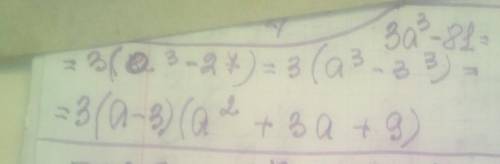 3a³-81=
=3(a³-27)=3(a³-3³)=
=3(a-3)(a²+3a+9)